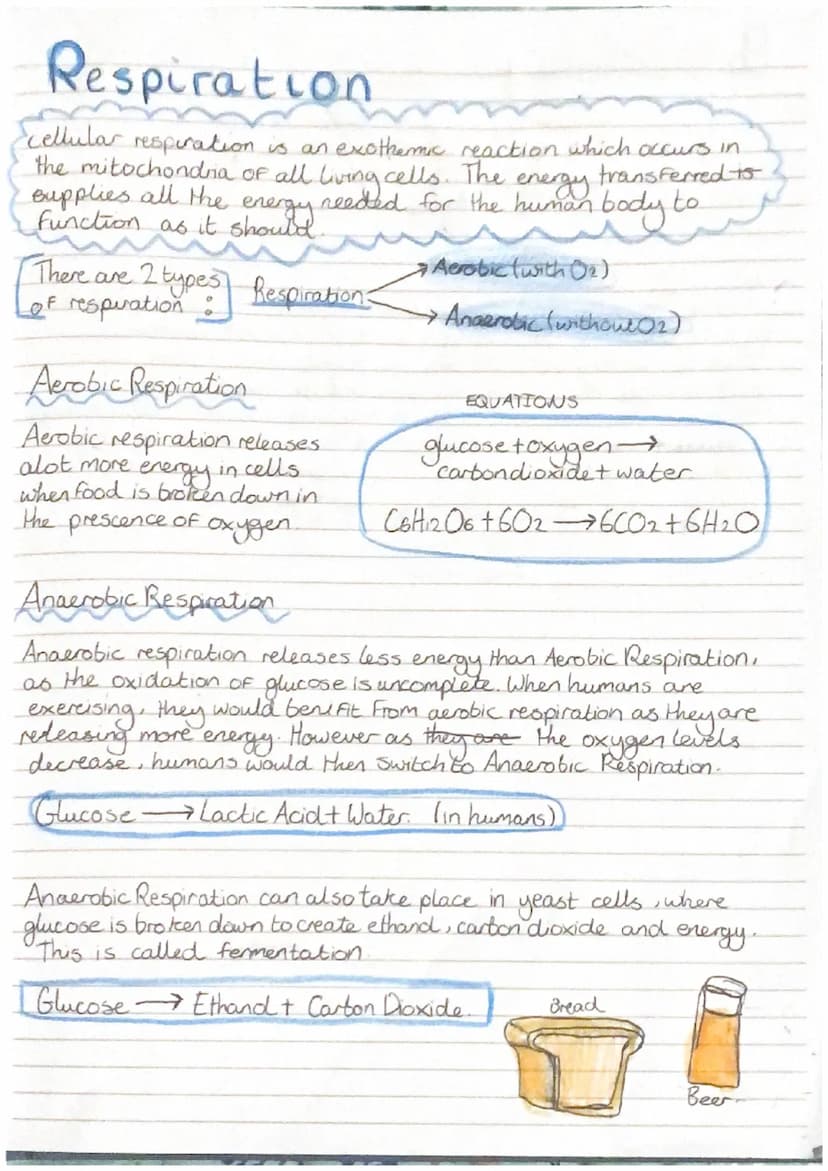 Respiration
cellular respiration is an exothermic reaction which occurs in
the mitochondria of all living cells. The energy transferred is
supplies all the energy needed for the human body to
function as it should.
There are 2 types
of respiration :
Respiration
Aerobic (with O2)
Anaerobic (without O2)
Aerobic Respiration
Aerobic respiration releases
alot more energy in cells
when food is broken down in
the prescence of oxygen.
EQUATIONS
glucose + oxygen →
carbondioxide + water
C6H12O6 + 6O2 → 6CO2 + 6H2O
Anaerobic Respiration
Anaerobic respiration releases less energy than Aerobic Respiration,
as the oxidation of glucose is uncomplete. When humans are
exercising, they would benifit from aerobic respiration as they are
releasing more energy. However as they are the oxygen levels
decrease, humans would then switch to Anaerobic Respiration.
Glucose → Lactic Acid + Water. (in humans)
Anaerobic Respiration can also take place in yeast cells, where
glucose is broken down to create ethanol, carbon dioxide and energy.
This is called fermentation.
Glucose → Ethanol + Carbon Dioxide.
Bread
Beer